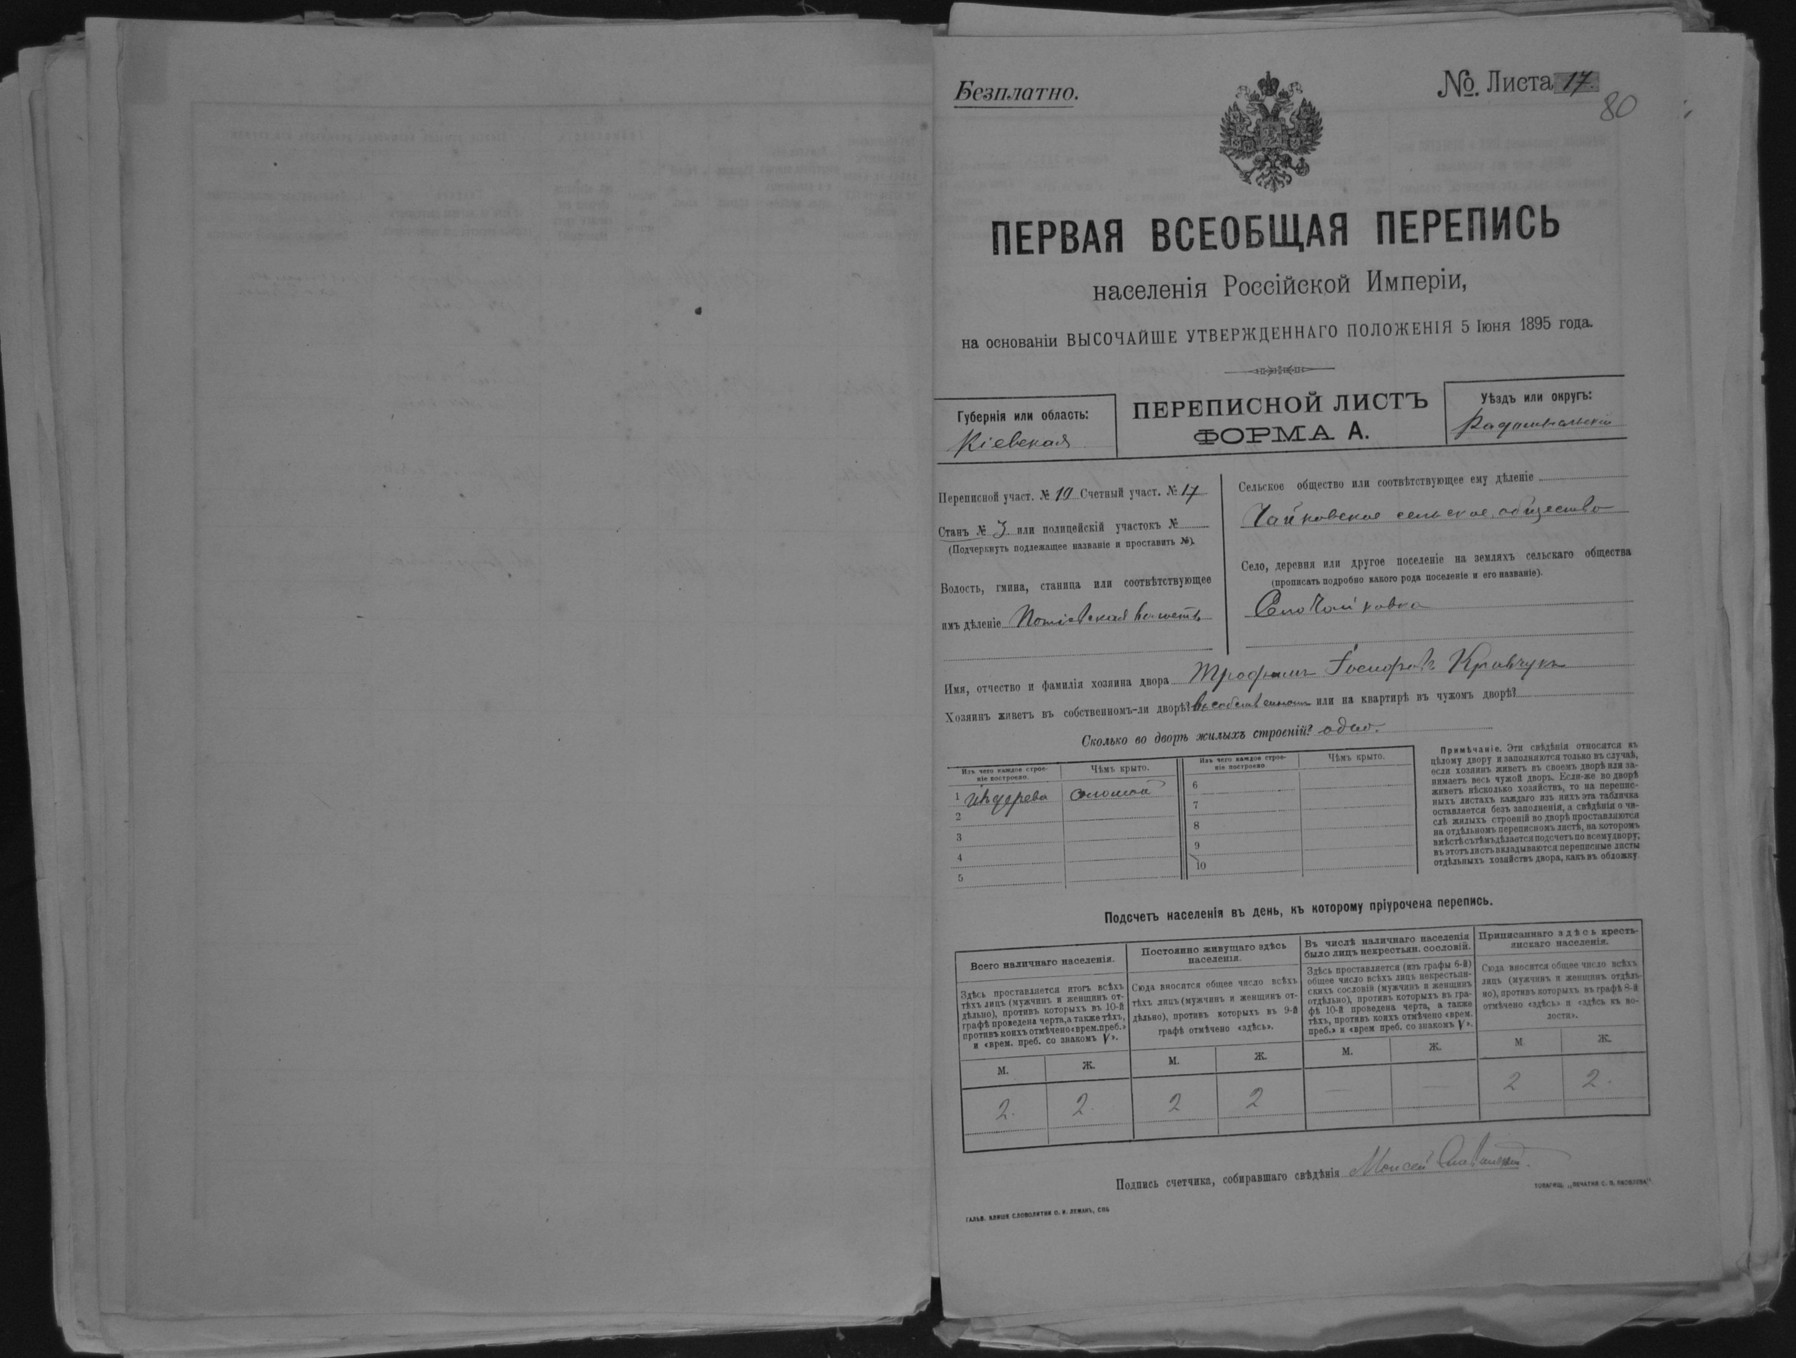 Безплатно.
№. Листа 17.
80
ПЕРВАЯ ВСЕОБЩАЯ ПЕРЕПИСЬ
населенія Россійской Имперіи,
на основаніи ВЫСОЧАЙШЕ УТВЕРЖДЕННАГО ПОЛОЖЕНІЯ 5 Іюня 1895 года.
Губернія или область:
Кіевская
ПЕРЕПИСНОЙ ЛИСТЪ
ФОРМА А.
Уѣздъ или округъ:
Радомысльскій
Переписной участ. № 10 Счетный участ. № 17
Станъ № 3 или полицейскій участокъ №
(Подчеркнуть подлежащее названіе и проставить №).
Волость, гмина, станица или соотвѣтствующее
имъ дѣленіе Потіевская волость
Сельское общество или соотвѣтствующее ему дѣленіе
Чайковское сельское общество
Село, деревня или другое поселеніе на земляхъ сельскаго общества
(прописать подробно какого рода поселеніе и его названіе).
Село Чайковка
Имя, отчество и фамилія хозяина двора Трофимъ Кравчукъ
Хозяинъ живетъ въ собственномъ-ли дворѣ? Въ собственномъ или на квартирѣ въ чужомъ дворѣ?
Сколько во дворѣ жилыхъ строеній? одно.
Изъ чего каждое строеніе построено.
Чѣмъ крыто.
Изъ чего каждое строеніе построено
Чѣмъ крыто.
1 Изъ дерева соломой
2
3
4
5
6
7
8
9
10
Примѣчаніе. Эти свѣдѣнія относятся къ
цѣлому двору и заполняются только въ случаѣ,
если хозяинъ живетъ въ своемъ дворѣ или за-
нимаетъ весь чужой дворъ. Если-же во дворѣ
живетъ нѣсколько хозяйствъ, то на перепис-
ныхъ листахъ каждаго изъ нихъ эта табличка
оставляется безъ заполненія, а свѣдѣнія о чи-
слѣ жилыхъ строеній во дворѣ проставляются
на отдѣльномъ переписномъ листѣ, на которомъ
вмѣстѣ съ тѣмъ дѣлается подсчетъ по всему двору;
въ этотъ листъ вкладываются переписные листы
отдѣльныхъ хозяйствъ двора, какъ въ обложку.
Подсчетъ населенія въ день, къ которому пріурочена перепись.
Всего наличнаго населенія.
Здѣсь проставляется итогъ всѣхъ
тѣхъ лицъ (мужчинъ и женщинъ от-
дѣльно), противъ которыхъ въ 10-й
графѣ проведена черта, а также тѣхъ,
противъ коихъ отмѣчено «врем. преб.»
и «врем. преб. со знакомъ V».
М. Ж.
2. 2.
Постоянно живущаго здѣсь
населенія.
Сюда вносится общее число всѣхъ
тѣхъ лицъ (мужчинъ и женщинъ от-
дѣльно), противъ которыхъ въ 9-й
графѣ отмѣчено «здѣсь».
М. Ж.
2 2
Въ числѣ наличнаго населенія
было лицъ некрестьян. сословій.
Здѣсь проставляется (изъ графы 6-й)
общее число всѣхъ лицъ некрестьян-
скихъ сословій (мужчинъ и женщинъ
отдѣльно), противъ которыхъ въ гра-
фѣ 10-й проведена черта, а также
тѣхъ, противъ коихъ отмѣчено «врем.
преб.» и «врем преб. со знакомъ V».
М. Ж.
— —
Приписаннаго здѣсь кресть-
янскаго населенія.
Сюда вносится общее число всѣхъ
лицъ (мужчинъ и женщинъ отдѣль-
но), противъ которыхъ въ графѣ 8-й
отмѣчено «здѣсь» и «здѣсь къ во-
лости».
М. Ж.
2 2.
Подпись счетчика, собиравшаго свѣдѣнія Моисей
ГАЛЬВ. КЛИШЕ СЛОВОЛИТНИ О. И. ЛЕМАНЪ, СПБ
ТОВАРИЩ. „ПЕЧАТНЯ С. П. ЯКОВЛЕВА“